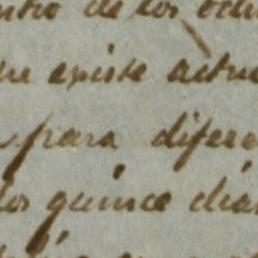 ntro de los och
ue existe actu
para difere
los quince días